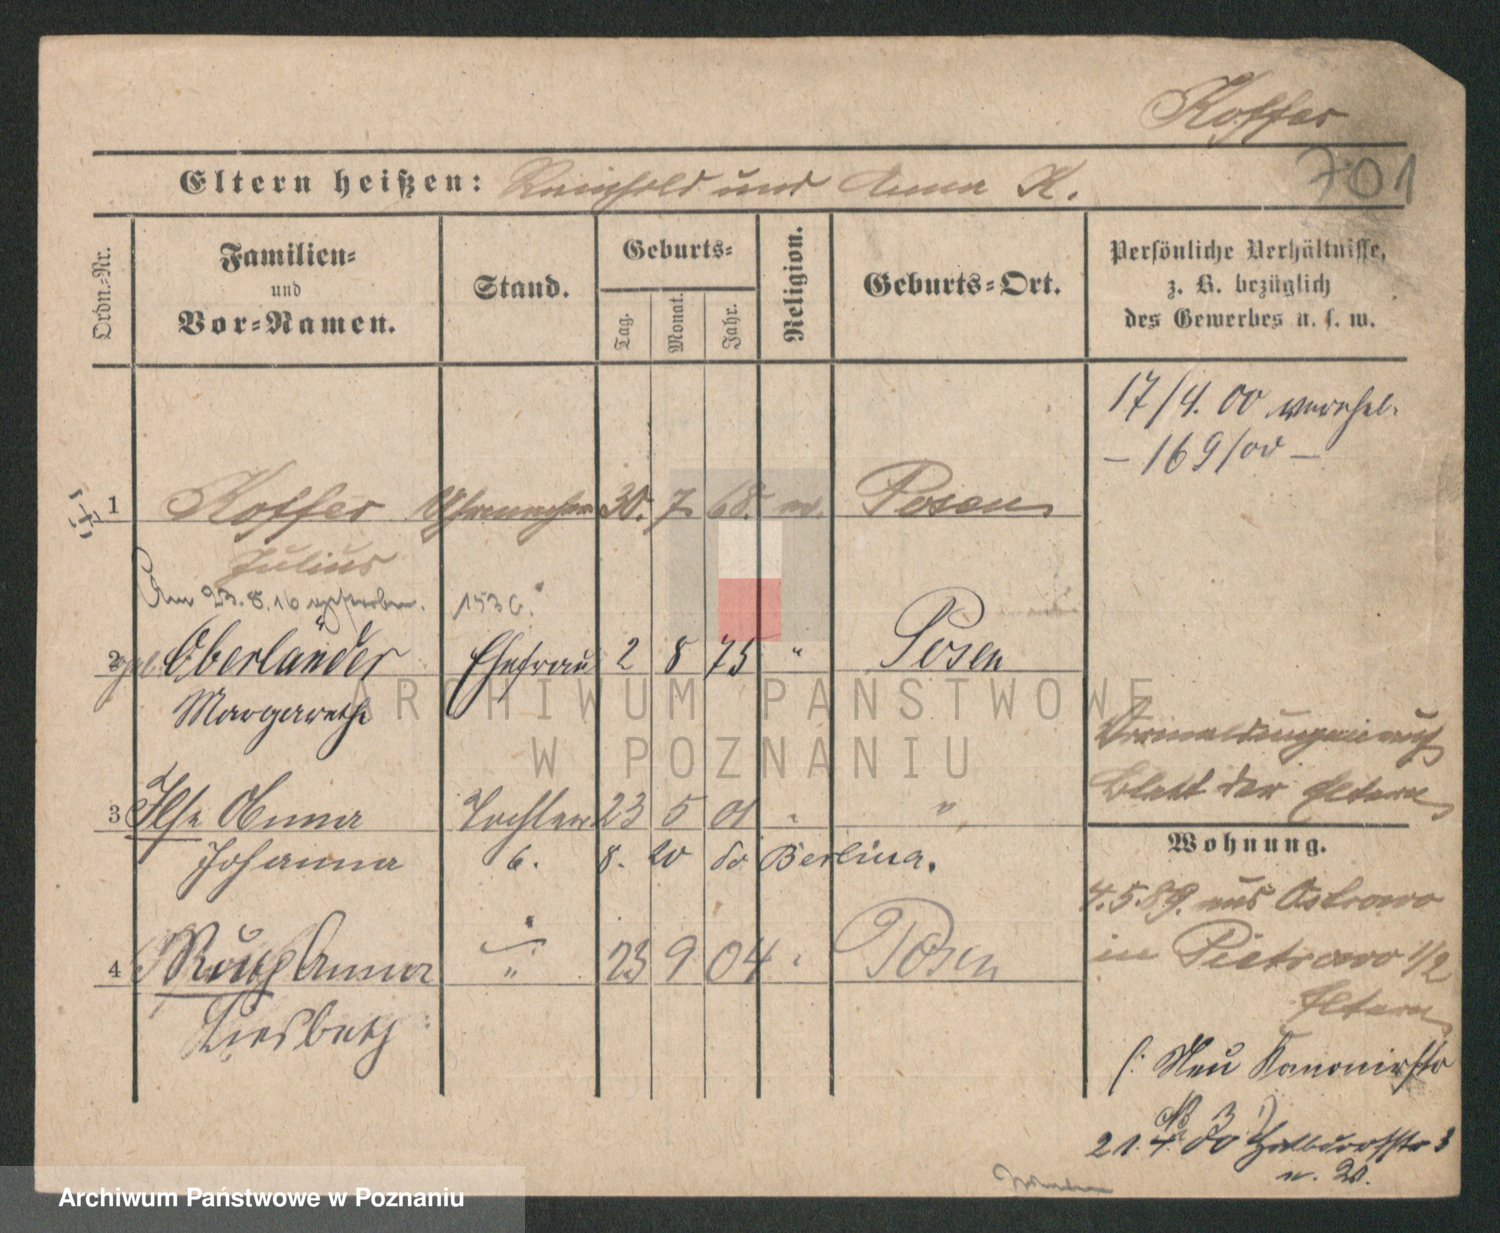 Koffer
701
Eltern heißen: Reinhold und Anna K.
Ordn.-Nr.
Familien-
und
Vor-Namen.
Stand.
Geburts-
Tag.
Monat.
Jahr.
Religion.
Geburts-Ort.
Persönliche Verhältnisse,
z. B. bezüglich
des Gewerbes u. s. w.
17/4. 00 verehel.
– 169/00 –
1 Koffer Uhrmacher 30. 7. 68. ev. Posen
Julius
Am 23.8.16 verstorben. 1536.
2 Oberländer Ehefrau 2 8 75 " Posen
Margarethe
3 Ilse Anna Tochter 23 5 01 " "
Johanna 6. 8. 20 do Berlin a.
4 Ruth Anna " 23 9 04 " Posen
Liesbeth
Blatt der Eltern
Wohnung.
4.5.89. aus Ostrowo
in Pietrowo 1/2
Eltern
(: Neu Kanonirstr
No 3)
21. 4. 00 3
u. 20.
ARCHIWUM PAŃSTWOWE
W POZNANIU
Archiwum Państwowe w Poznaniu